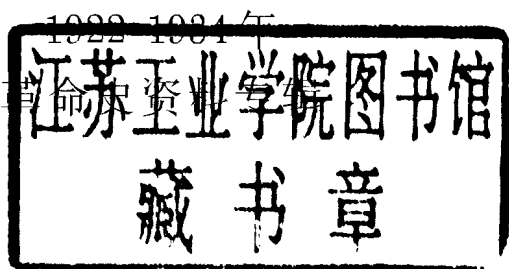 1922-1934年
革命史资料专辑
江苏工业学院图书馆
藏书章